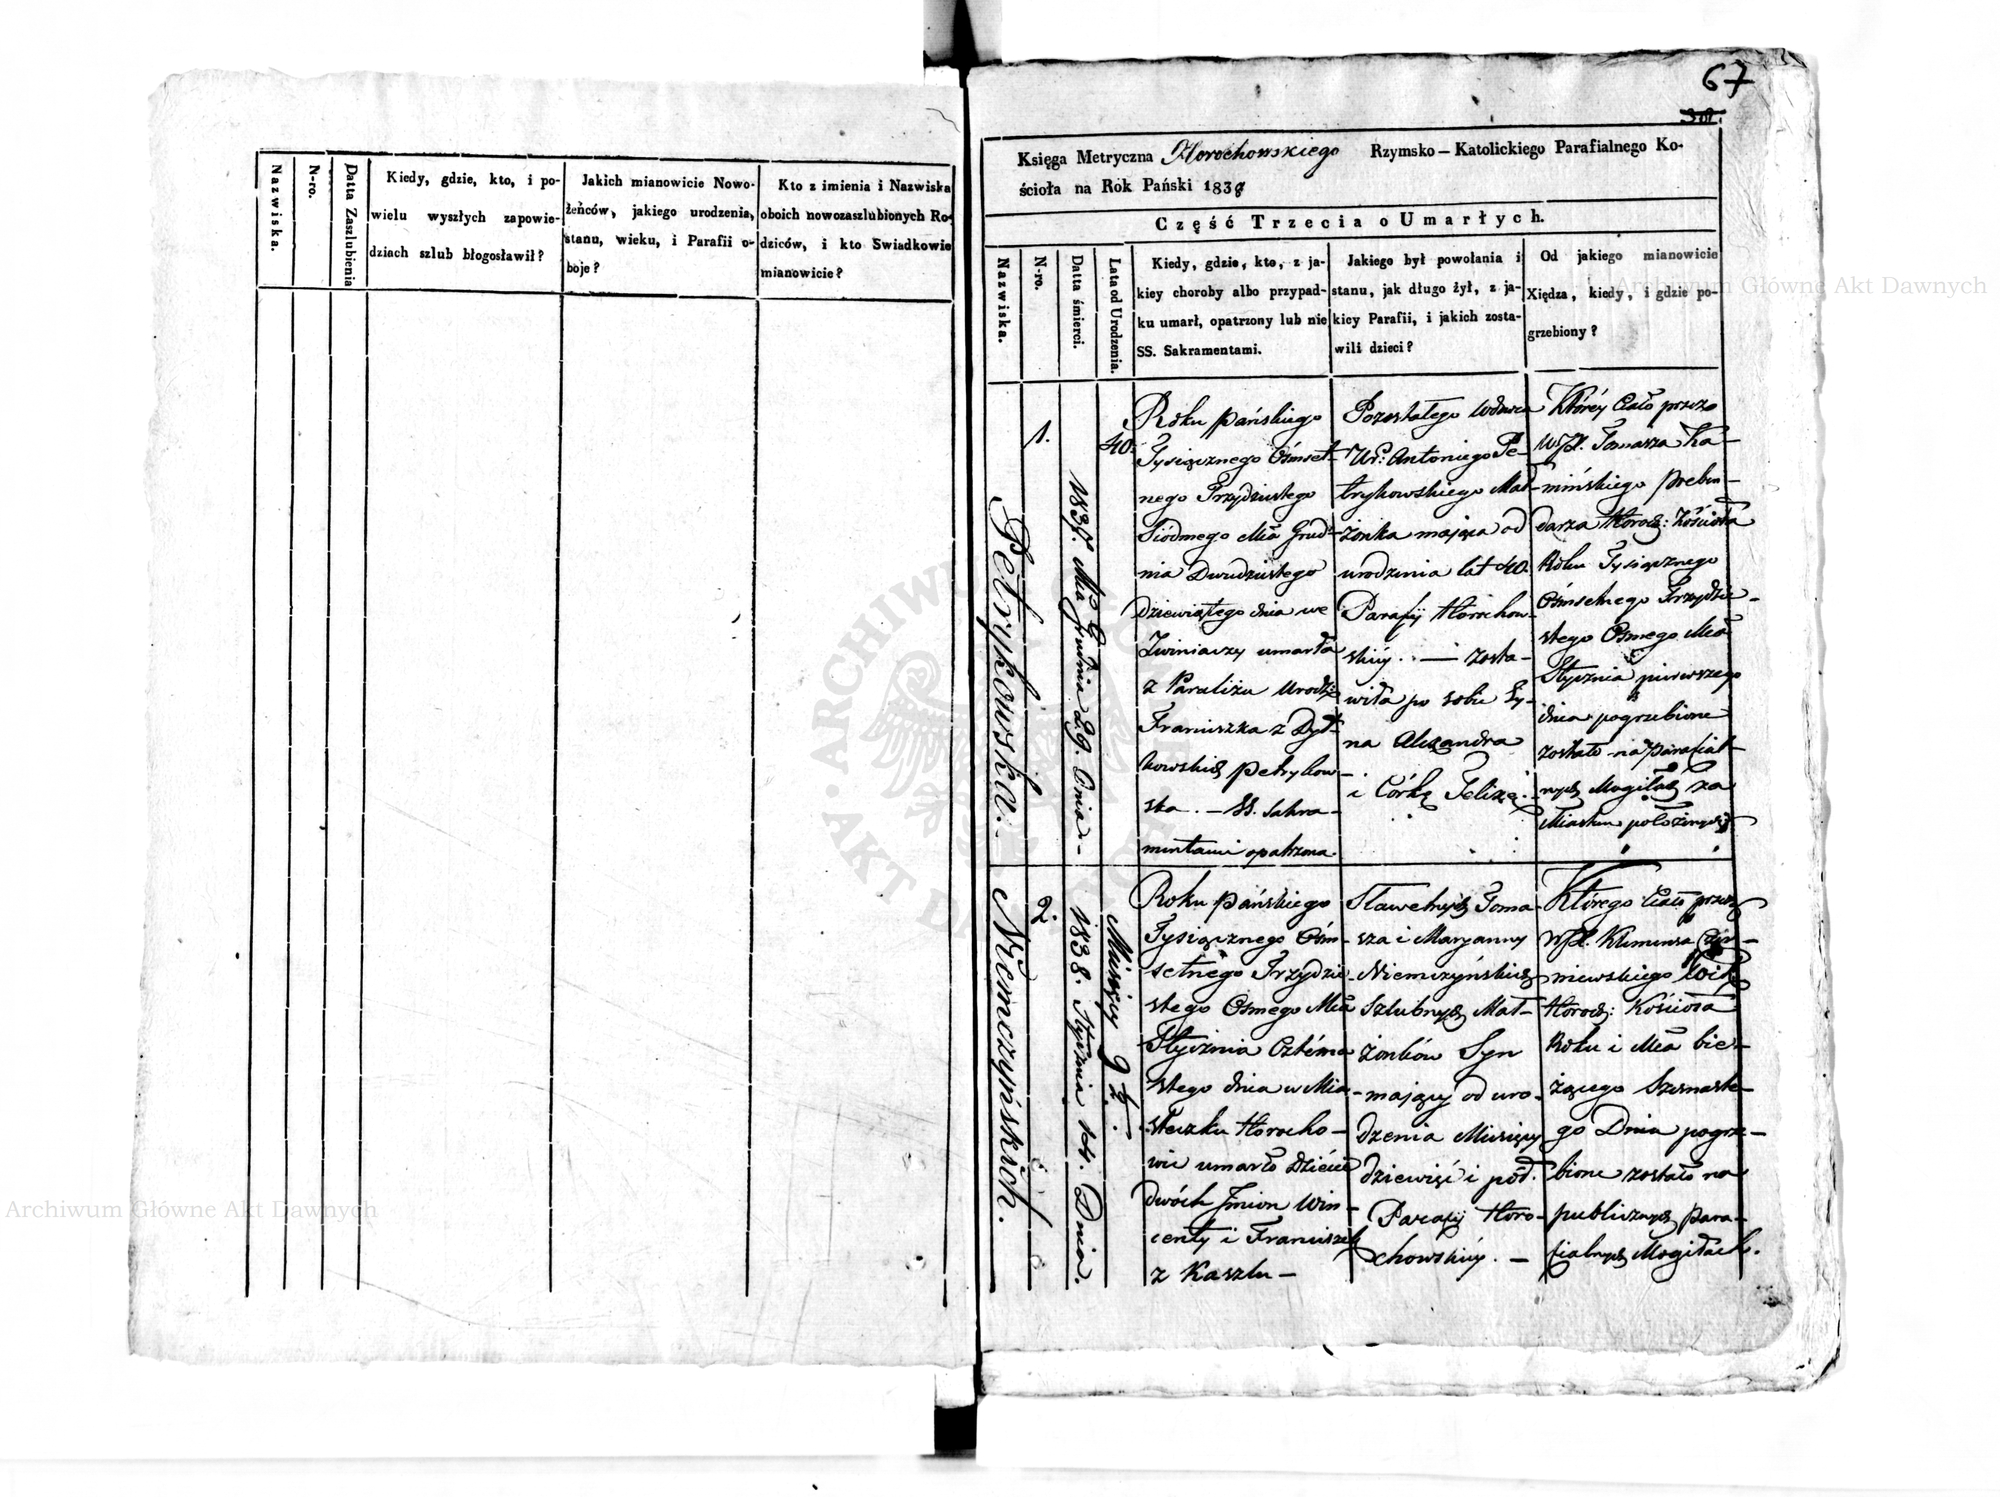 Nazwiska.
N-ro.
Datta Zaszlubienia
Kiedy, gdzie, kto, i po-
wielu wyszłych zapowie-
dziach szlub błogosławił?
Jakich mianowicie Nowo-
żeńców, jakiego urodzenia,
stanu, wieku, i Parafii o-
boje?
Kto z imienia i Nazwiska
oboich nowozaszlubionych Ro-
dziców, i kto Swiadkowie
mianowicie?
67
Księga Metryczna Horochowskiego Rzymsko-Katolickiego Parafialnego Ko-
ścioła na Rok Pański 1838
Część Trzecia o Umarłych.
Nazwiska.
N-ro.
Datta śmierci.
Lata od Urodzenia.
Kiedy, gdzie, kto, z ja-
kiey choroby albo przypad-
ku umarł, opatrzony lub nie
SS. Sakramentami.
Jakiego był powołania i
stanu, jak długo żył, z ja-
kiey Parafii, i jakich zosta-
wili dzieci?
Od jakiego mianowicie
Xiędza, kiedy, i gdzie po-
grzebiony?
Petrykowska.
1.
1837. Mca Grudnia 29. Dnia
40.
Roku Pańskiego
Tysiącznego Ośmset-
nego Trzydziestego
Siódmego Mca Grud-
nia Dwudziestego
dziewiątego dnia we
Zwiniaczy umarła
z Paraliżu Urodz:
Franciszka z Dył-
kowskich Petrykow-
ska. — SS. Sakra-
mentami opatrzona
Pozostałego Wdowca
Ur: Antoniego Pe-
trykowskiego Mał-
żonka mająca od
urodzenia lat 40.
Parafij Horochow-
skiey. — zosta-
wiła po sobie Sy-
na Alexandra
i Córkę Felixę.
Którey Ciało przez
WJX. Tomasza Ka-
mińskiego Preben-
darza Horoch: Kościoła
Roku Tysiącznego
Ośmsetnego Trzydzie-
stego Osmego Mca
Stycznia pierwszego
dnia pogrzebione
zostało na Parafial-
nych Mogiłach za
Miastem położonych
Niemczyńskich.
2.
1838. Stycznia 14. Dnia.
Miesięcy 9 ½.
Roku Pańskiego
Tysiącznego Ośm-
setnego Trzydzie-
stego Osmego Mca
Stycznia Czterna-
stego dnia w Mia-
steczku Horocho-
wie umarło Dziécie
dwóch Imion Win-
centy i Franciszek
z Kaszlu —
Sławetnych Toma-
sza i Maryanny
Niemczyńskich
Szlubnych Mał-
żonków Syn
mający od uro-
dzenia Miesięcy
dziewięć i pół.
Parafij Horo-
chowskiey. —
Którego Ciało przez
WJX. Klemensa
niewskiego Wik:
Horoch: Kościoła
Roku i Mca bie-
żącego Szesnaste-
go Dnia pogrze-
bione zostało na
publicznych Para-
fialnych Mogiłach.
ARCHIWUM GŁÓWNE AKT DAWNYCH
Archiwum Główne Akt Dawnych
Archiwum Główne Akt Dawnych